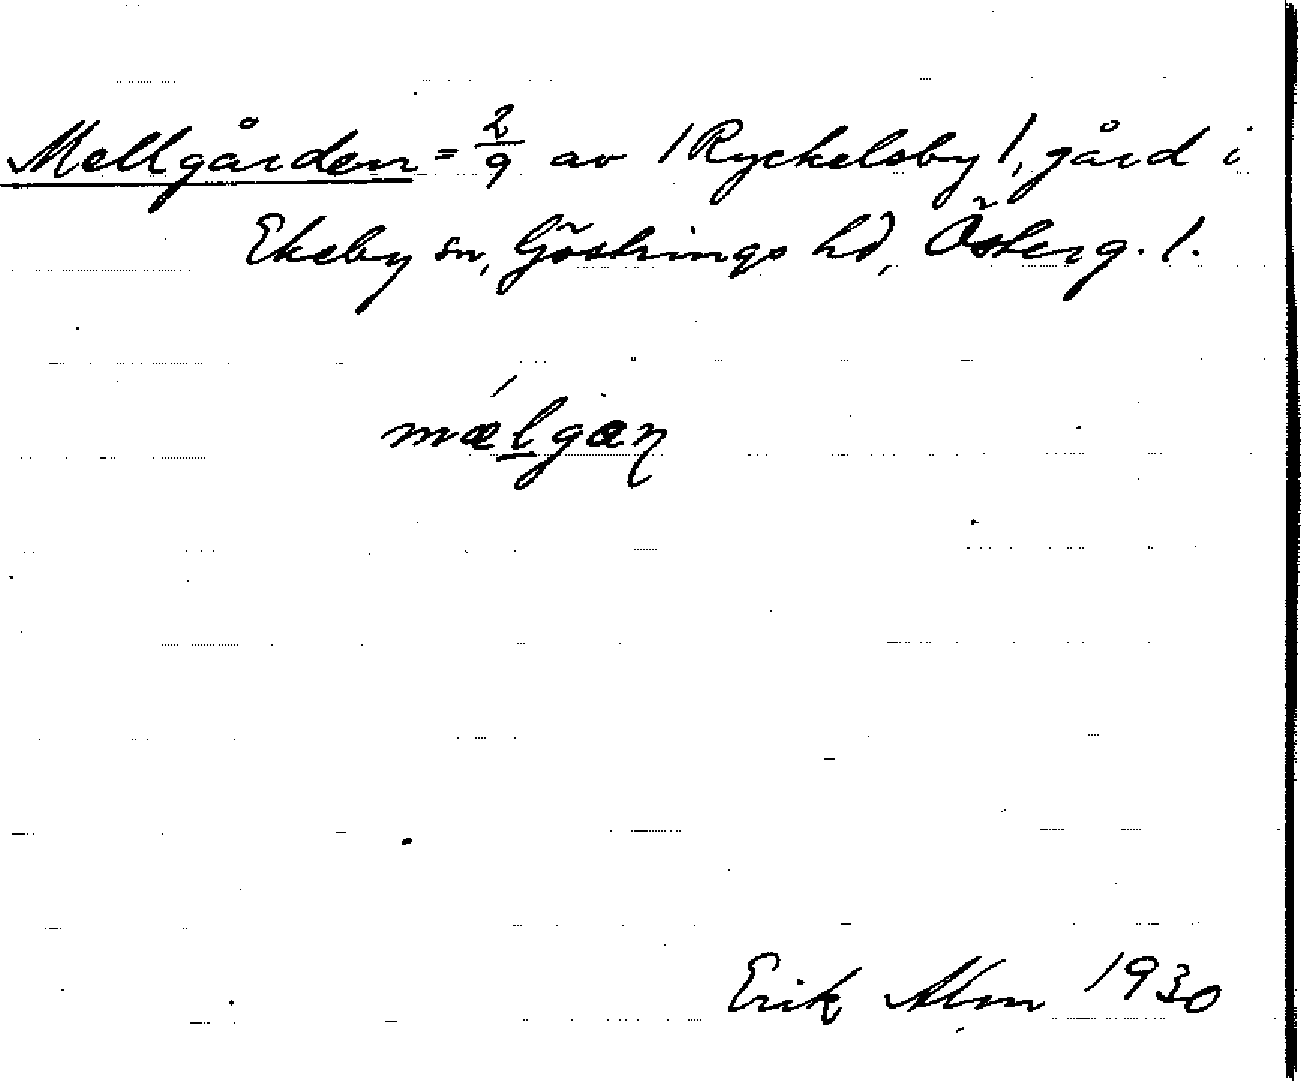 Mellgården = 2/9 av /Ryckelsby/, gård i
Ekeby sn, Göstrings hd, Österg. l.
mælgæn
Erik Alm 1930